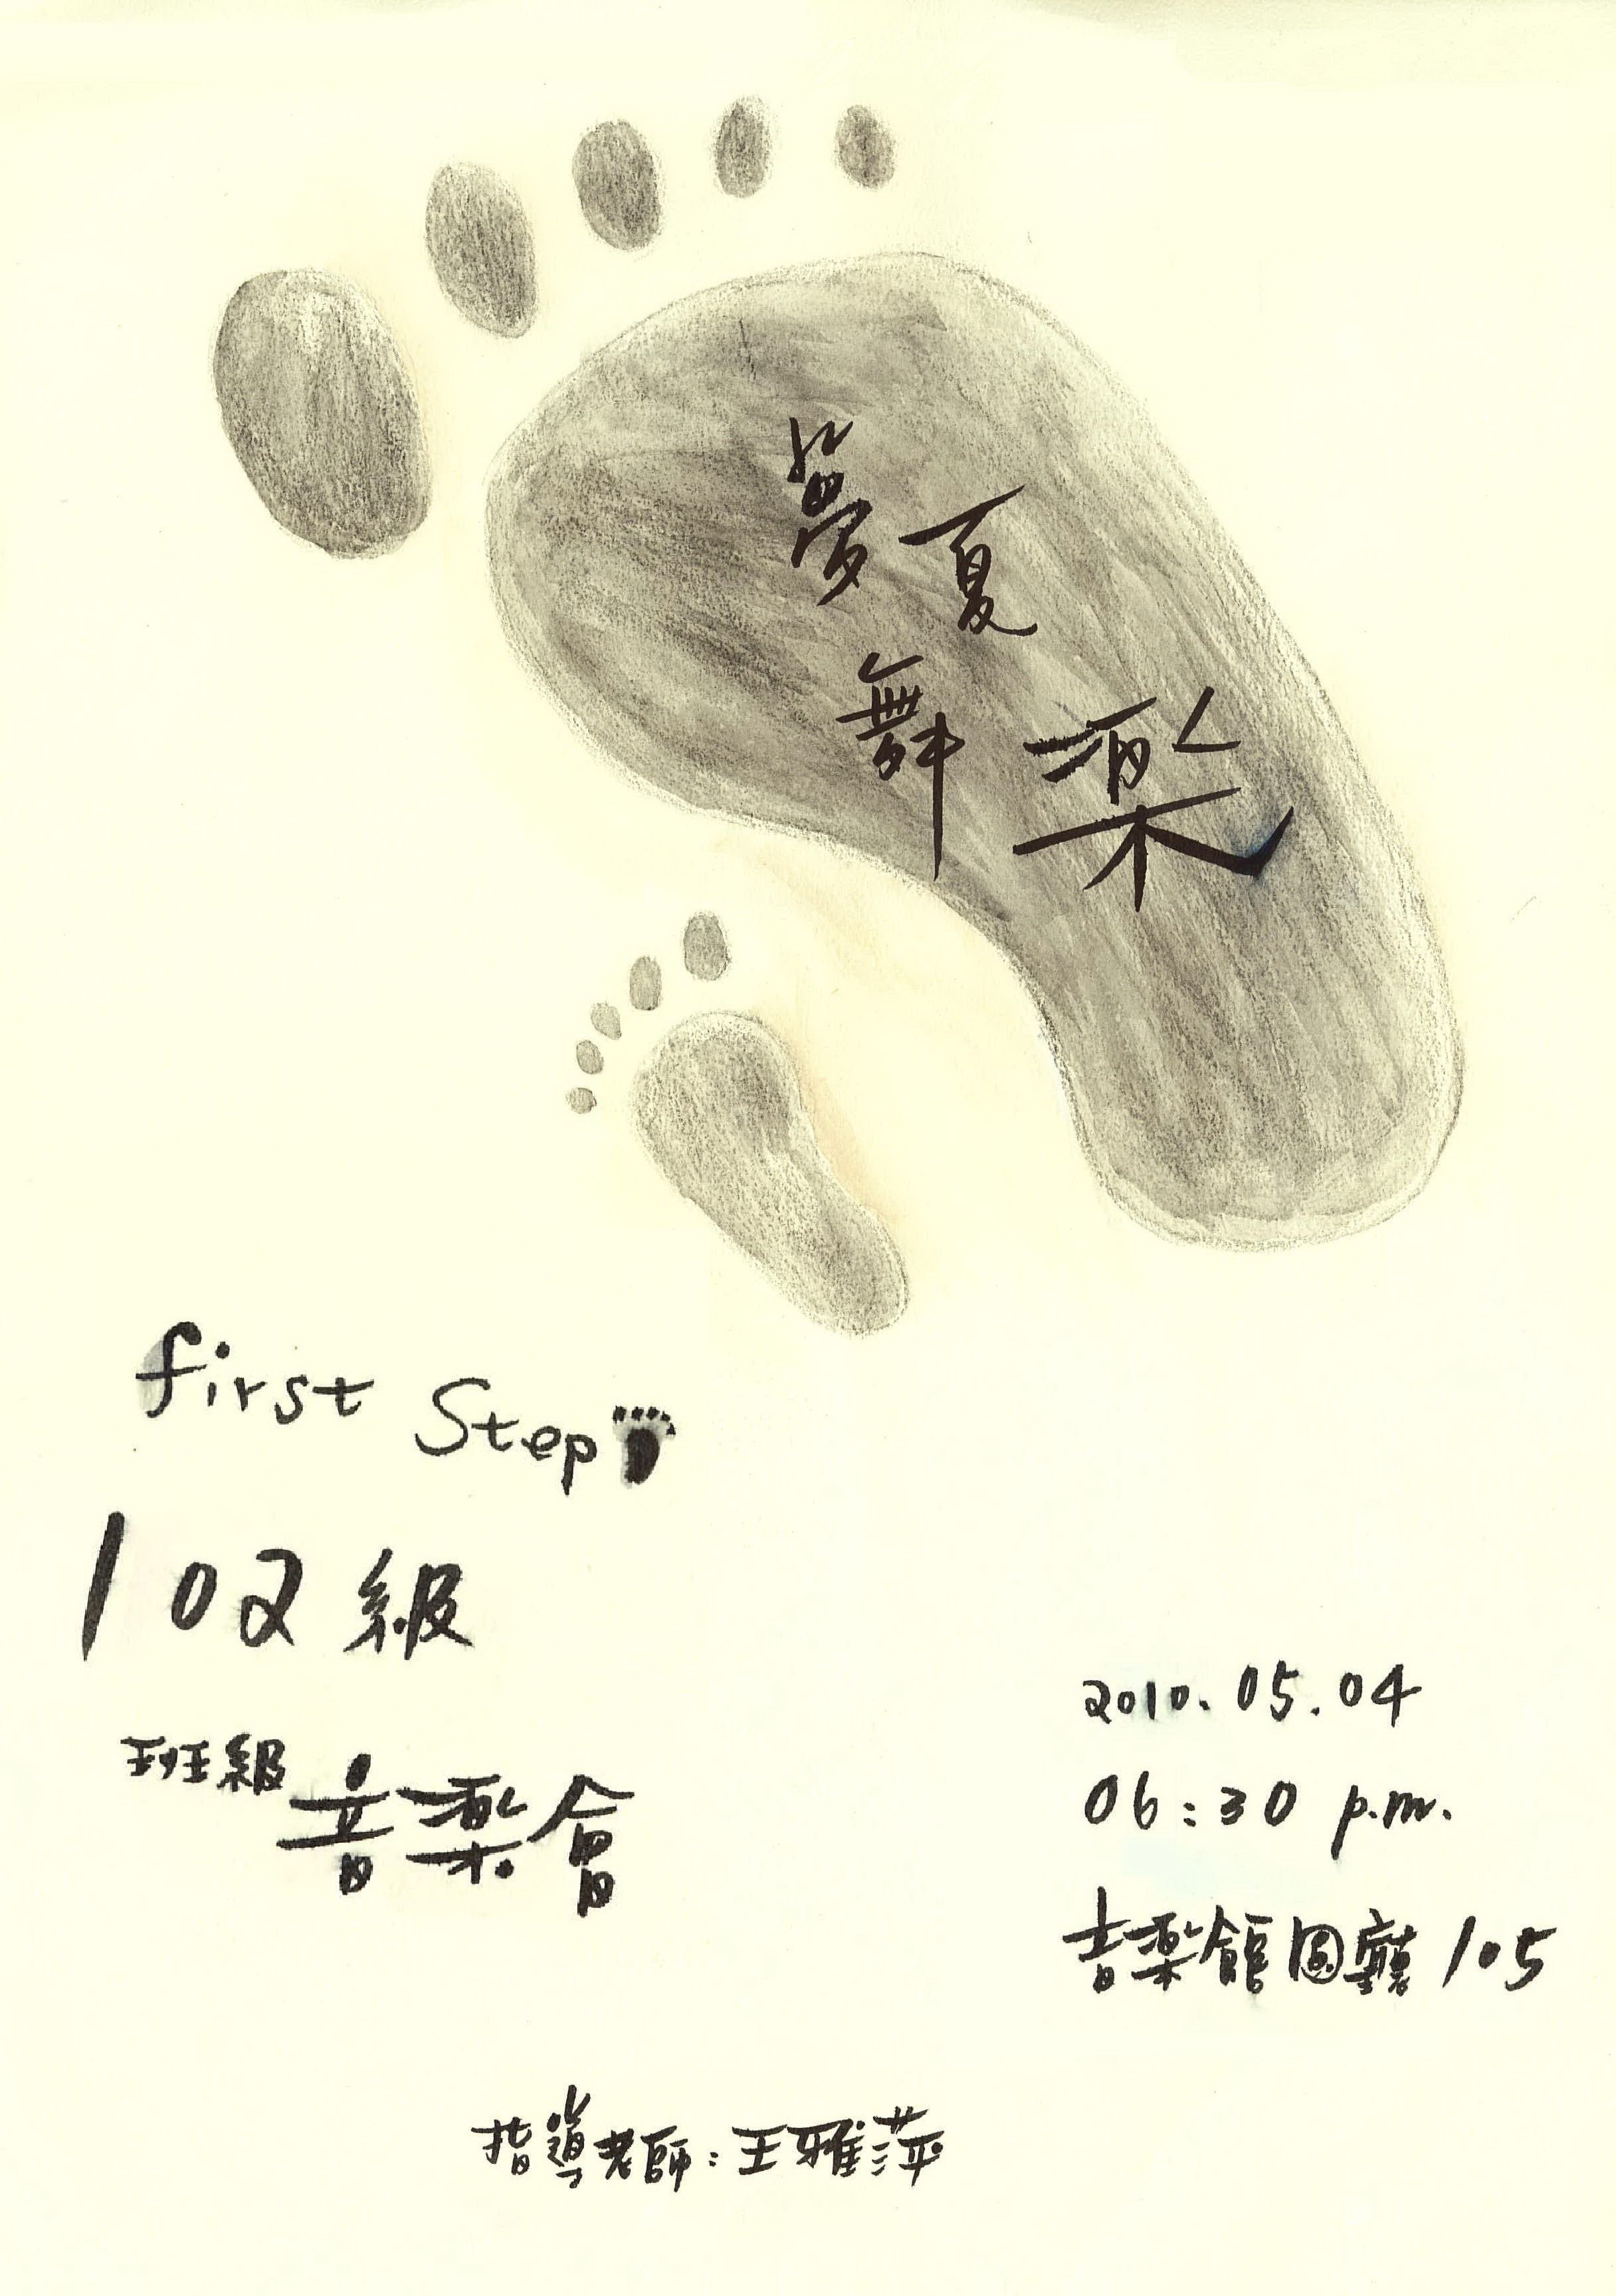 夢夏
舞樂
first Step
102級
班級音樂會
2010.05.04
06:30 p.m.
音樂館圓廳105
指導老師:王雅萍